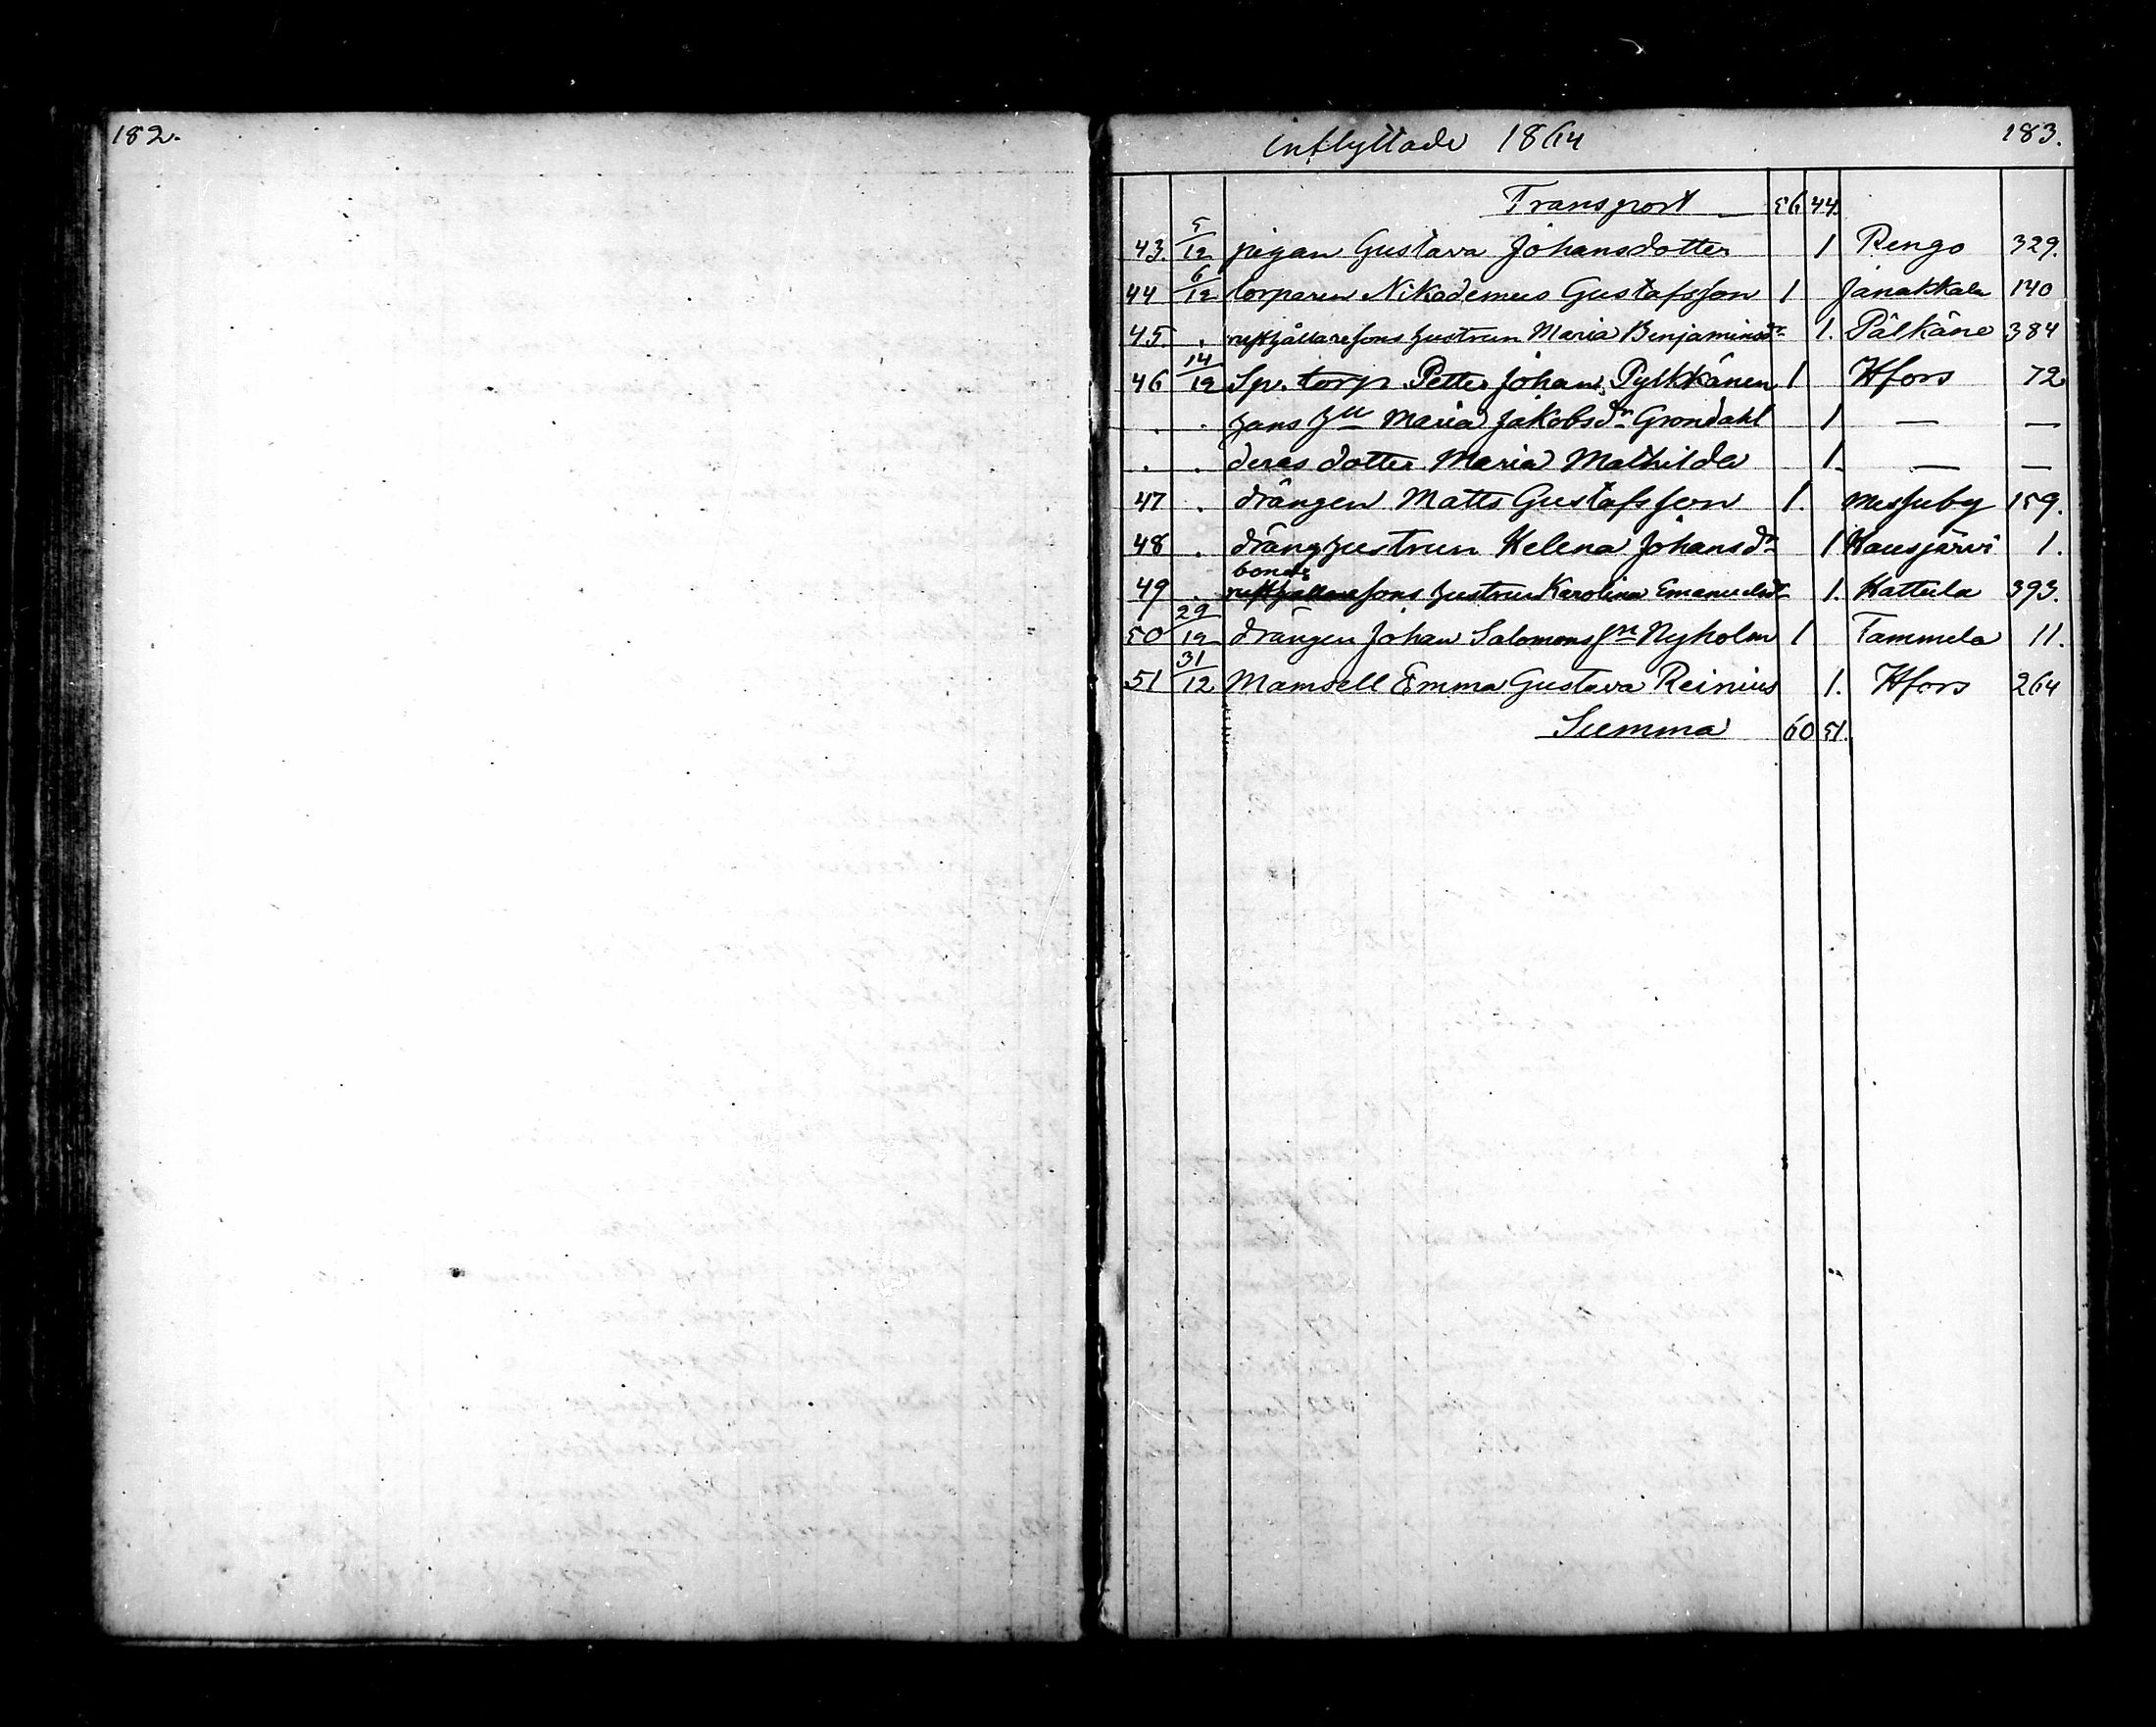 182.
inflyttade 1864 183.
Transport 56 44.
43. 5/12 pigan Gustava Johansdotter 1 Rengo 329.
44 6/12 torparen Nikodemus Gustafsson 1 Janakkala 140
45. . rusthållaresons hustrun Maria Benjaminsdr 1. Pälkäne 384
46 14/12 Sp. torp. Petter Johan Pylkkänen 1 Hfors 72
. . hans hu Maria Jakobsdr Grondahl 1 — —
. . deras dotter Maria Mathilda 1. — —
47 . drängen Matts Gustafsson 1. Messuby 159.
48 . dränghustrun Helena Johansdr 1 Hausjärvi 1.
bonde
49 . rusthållaresons hustrun Karolina Emanuelsdr 1. Hattula 393.
50 29/12 drängen Johan Salomonssn Nyholm 1 Tammela 11.
51 31/12 Mamsell Emma Gustava Reinius 1. Hfors 264
Summa 60 51.